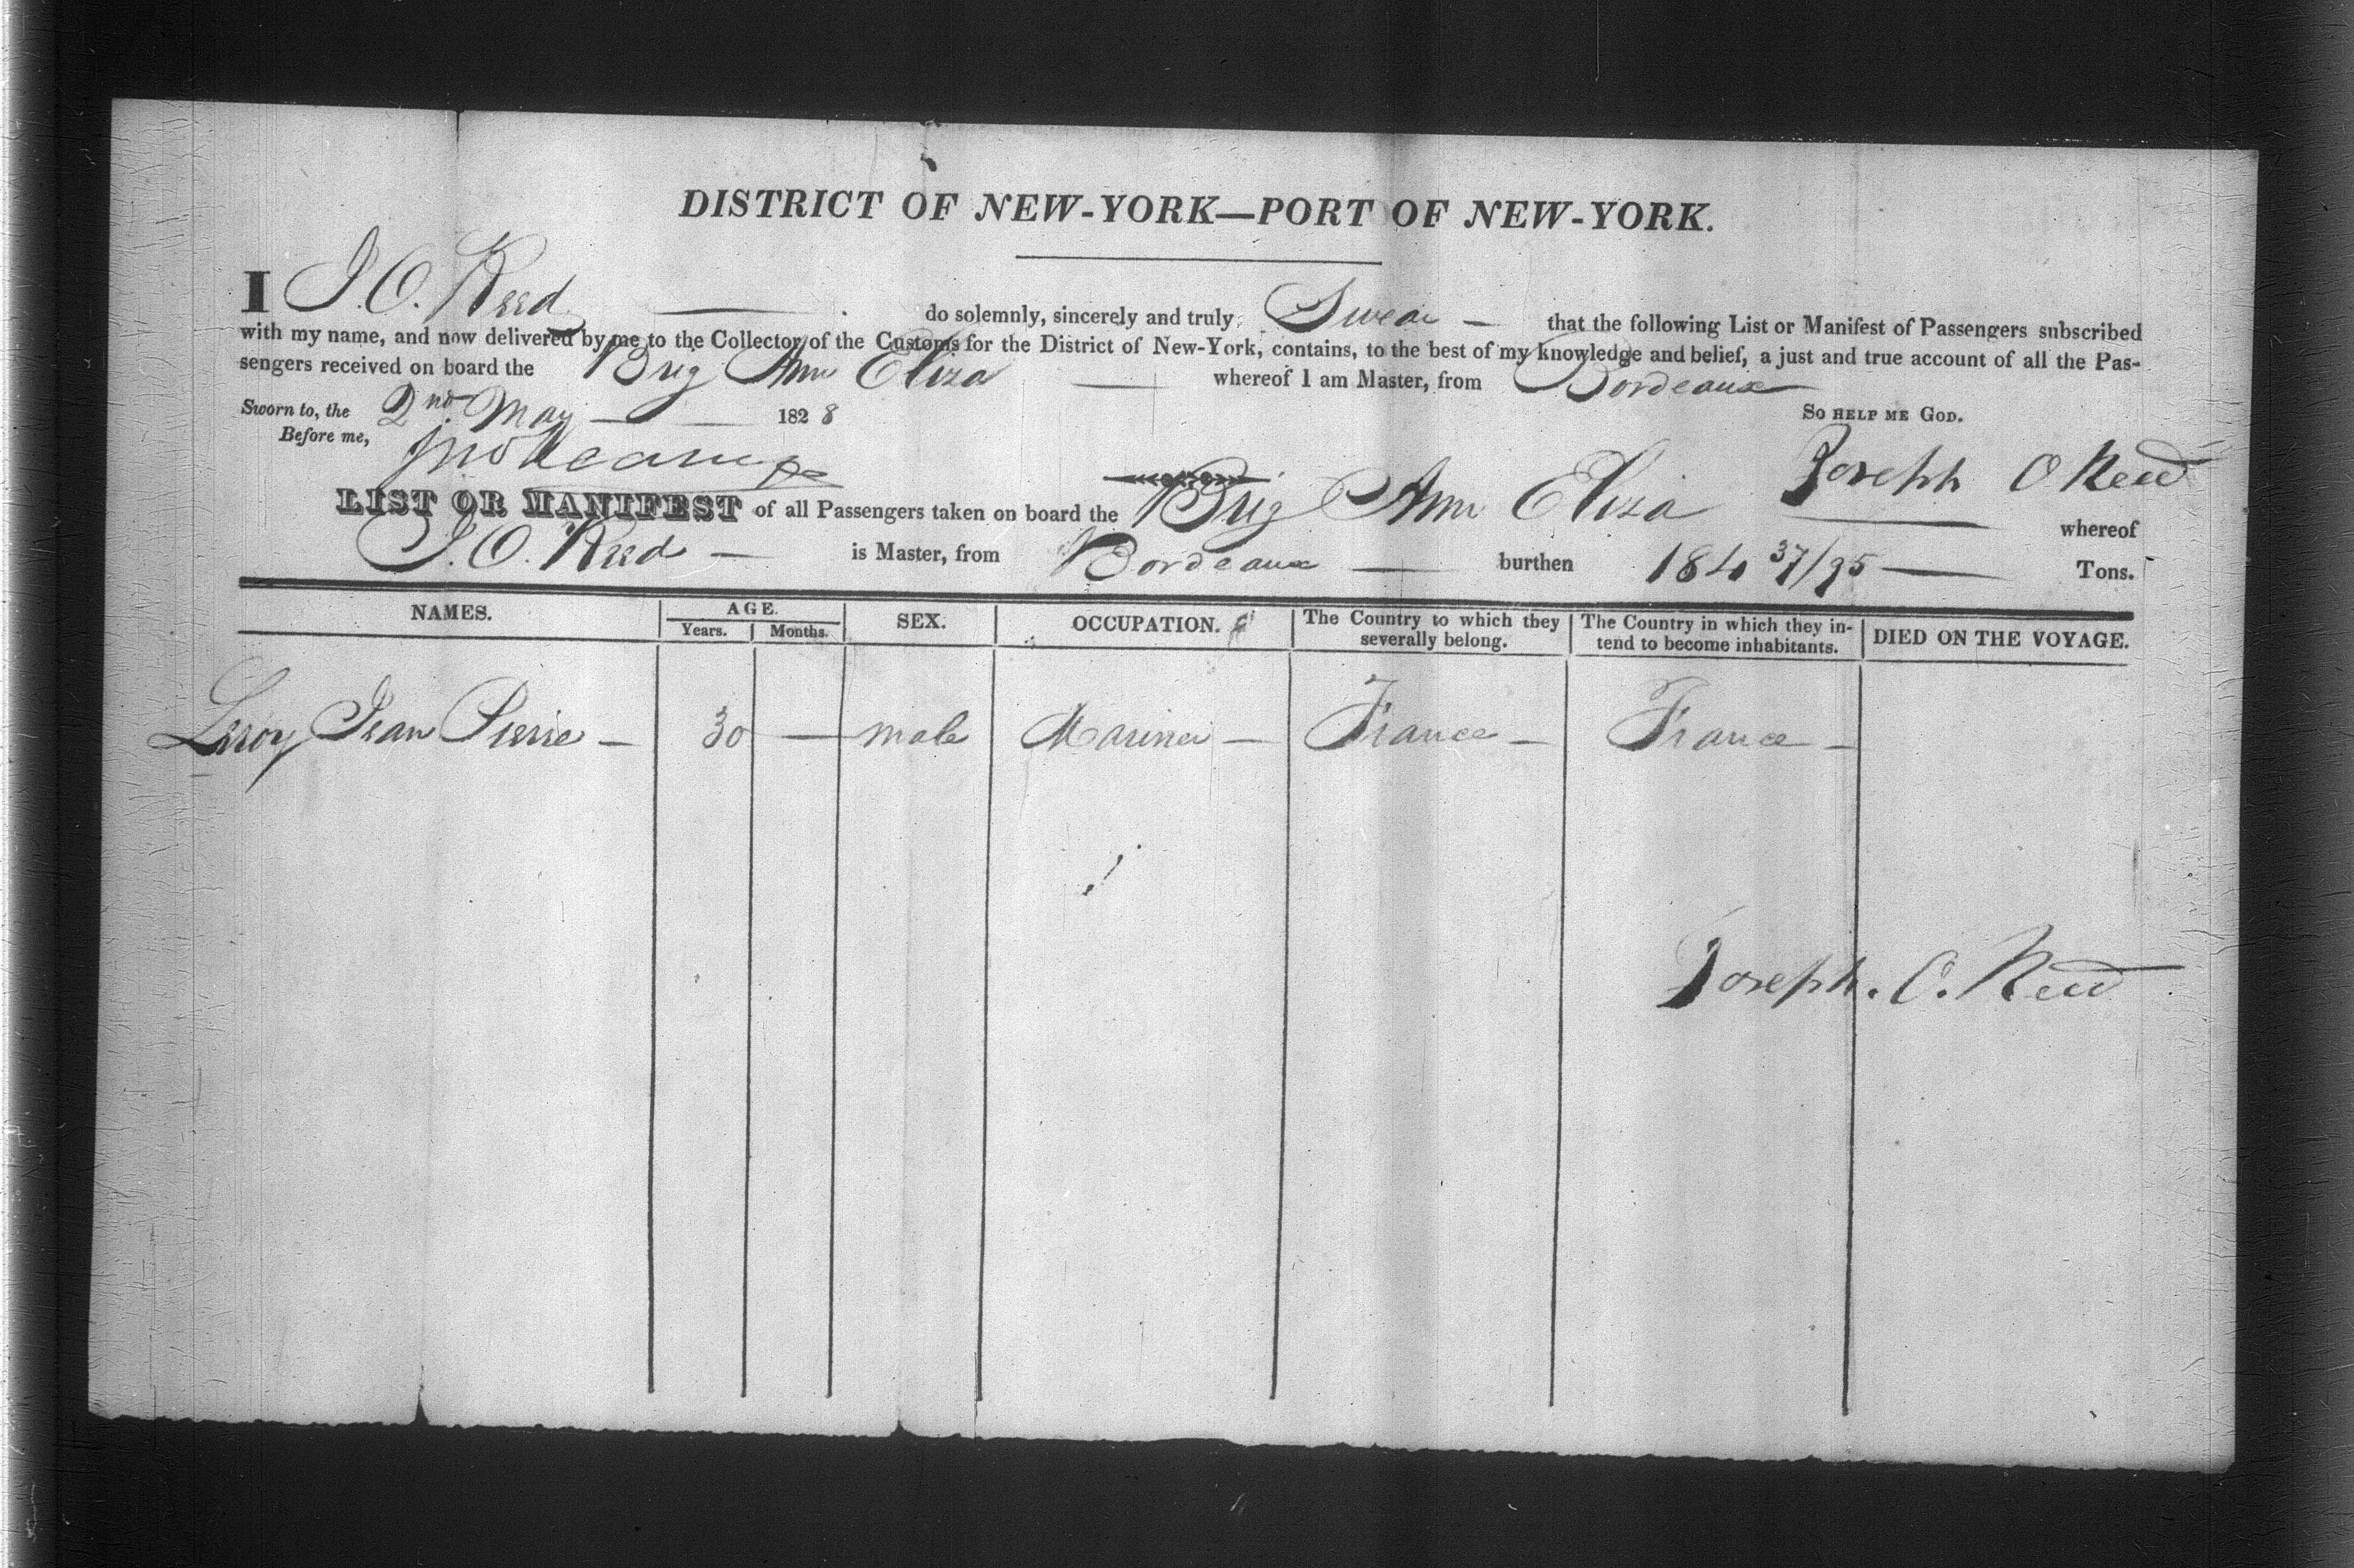 DISTRICT OF NEW-YORK—PORT OF NEW-YORK.
I J. O. Reed do solemnly, sincerely and truly Swear — that the following List or Manifest of Passengers subscribed
with my name, and now delivered by me to the Collector of the Customs for the District of New-York, contains, to the best of my knowledge and belief, a just and true account of all the Pas-
sengers received on board the Brig Ann Eliza — whereof I am Master, from Bordeaux
Sworn to, the 2nd May — 1828 SO HELP ME GOD.
Before me,
Joseph O Reed
LIST OR MANIFEST of all Passengers taken on board the Brig Ann Eliza — whereof
J. O. Reed — is Master, from Bordeaux — burthen 184 37/95 — Tons.
NAMES. AGE. SEX. OCCUPATION. The Country to which they severally belong. The Country in which they in-tend to become inhabitants. DIED ON THE VOYAGE.
Years. Months.
Leroy Jean Pierre — 30 — male Mariner — France — France —
Joseph. O. Reed